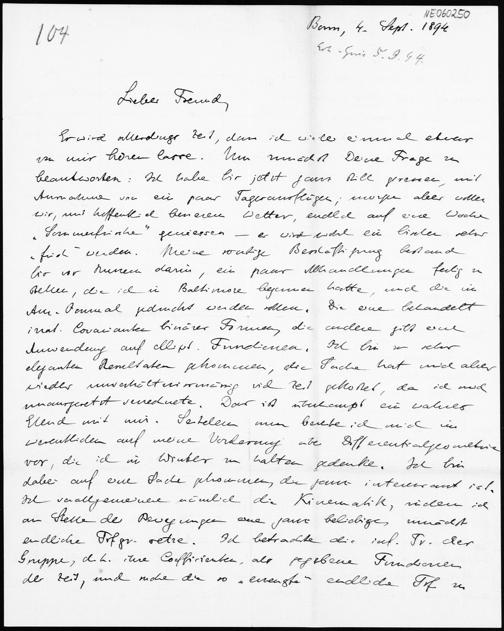 NE060250
104
Bonn, 4. Sept. 1894
5.9.94.
Lieber Freund,
Es wird allerdings Zeit, dass ich wieder einmal etwas
von mir hören lasse. Um zunächst Deine Frage zu
beantworten: Ich habe bis jetzt ganz still gesessen, mit
Ausnahme von ein paar Tagesausflügen; morgen aber wollen
wir, mit hoffentlich besserem Wetter, endlich auf eine Woche
„Sommerfrische" geniessen – es wird wohl ein bischen sehr
„frisch" werden. Meine sonstige Beschäftigung bestand
bis vor Kurzem darin, ein paar Abhandlungen fertig zu
stellen, die ich in Baltimore begonnen hatte, und die im
Am. Journal gedruckt werden sollen. Die eine behandelt
irrat. Covarianten binärer Formen, die andere gibt eine
Anwendung auf ellipt. Functionen. Ich bin zu sehr
eleganten Resultaten gekommen, die Sache hat mich aber
wieder unverhältnissmässig viel Zeit gekostet, da ich mich
unausgesetzt verrechnete. Das ist überhaupt ein wahres
Elend mit mir. Seitdem nun bereite ich mich im
wesentlichen auf meine Vorlesung über Differentialgeometrie
vor, die ich im Winter zu halten gedenke. Ich bin
dabei auf eine Sache gekommen, die ganz interessant ist.
Ich verallgemeinere nämlich die Kinematik, indem ich
an Stelle der Bewegungen eine ganz beliebige, zunächst
endliche Trfgr. setze. Ich betrachte die inf. Tr. der
Gruppe, d.h. ihre Coefficienten, als gegebene Functionen
der Zeit, und suche die so „erzeugte" endliche Trf. zu